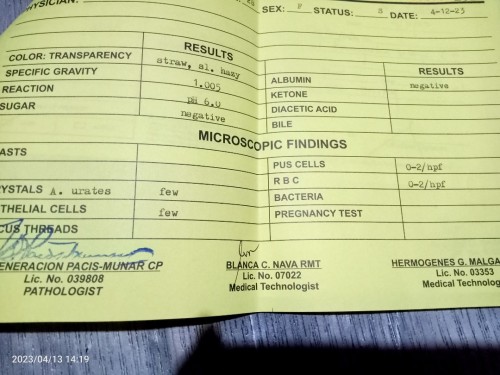 PHYSICIAN:
SEX: F STATUS: S DATE: 4-12-23
RESULTS
COLOR: TRANSPARENCY straw, sl. hazy
SPECIFIC GRAVITY 1.005
REACTION pH 6.0
SUGAR negative
RESULTS
ALBUMIN negative
KETONE
DIACETIC ACID
BILE
MICROSCOPIC FINDINGS
ASTS
RYSTALS A. urates few
THELIAL CELLS few
CUS THREADS
PUS CELLS 0-2/hpf
R B C 0-2/hpf
BACTERIA
PREGNANCY TEST
ENERACION PACIS-MUNAR CP
Lic. No. 039808
PATHOLOGIST
BLANCA C. NAVA RMT
Lic. No. 07022
Medical Technologist
HERMOGENES G. MALGA
Lic. No. 03353
Medical Technolog
2023/04/13 14:19